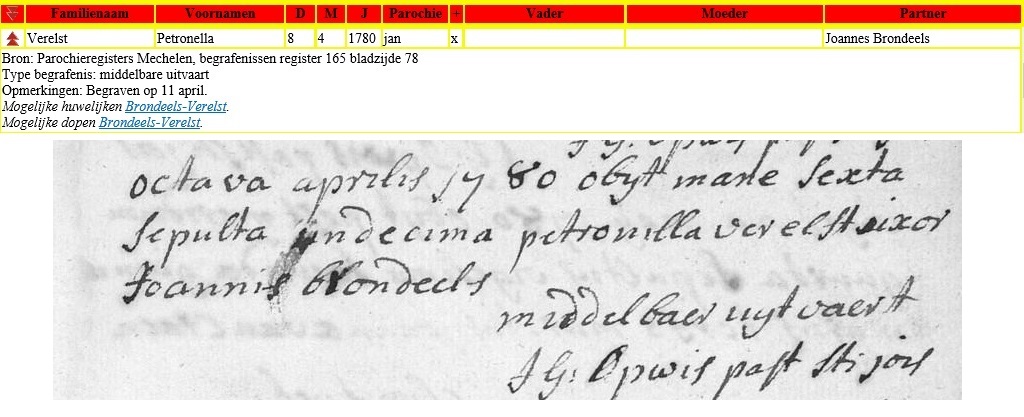 Familienaam Voornamen D M J Parochie + Vader Moeder Partner
Verelst Petronella 8 4 1780 jan x Joannes Brondeels
Bron: Parochieregisters Mechelen, begrafenissen register 165 bladzijde 78
Type begrafenis: middelbare uitvaart
Opmerkingen: Begraven op 11 april.
Mogelijke huwelijken Brondeels-Verelst.
Mogelijke dopen Brondeels-Verelst.
octava aprilis 1780 obyt mane sexta
sepulta undecima petronilla verelst uxor
Joannis blondeels
middelbaer uytvaert
J G: Opwis past sti jois